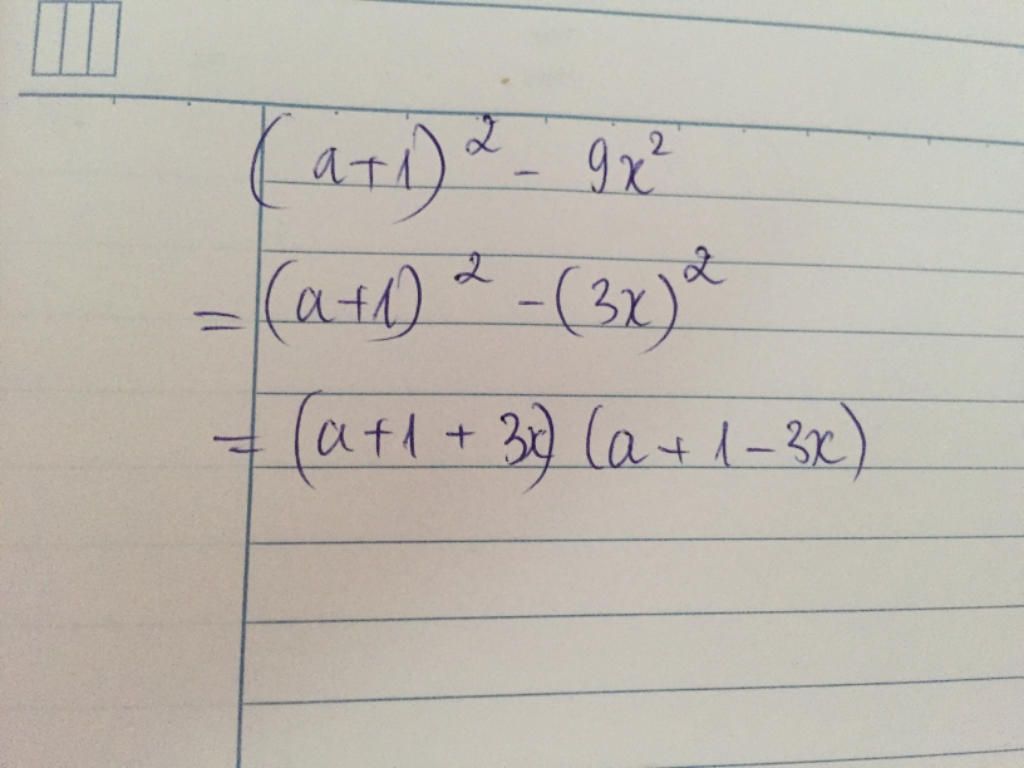 (a+1)² - 9x²
= (a+1)² - (3x)²
= (a+1+3x) (a+1-3x)